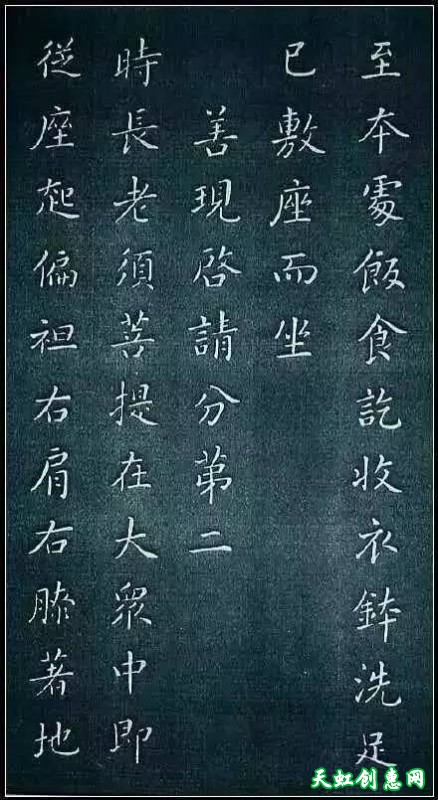 至本處飯食訖收衣鉢洗足
已敷座而坐
善現啓請分第二
時長老須菩提在大衆中即
從座起偏袒右肩右膝著地
天虹创惠网